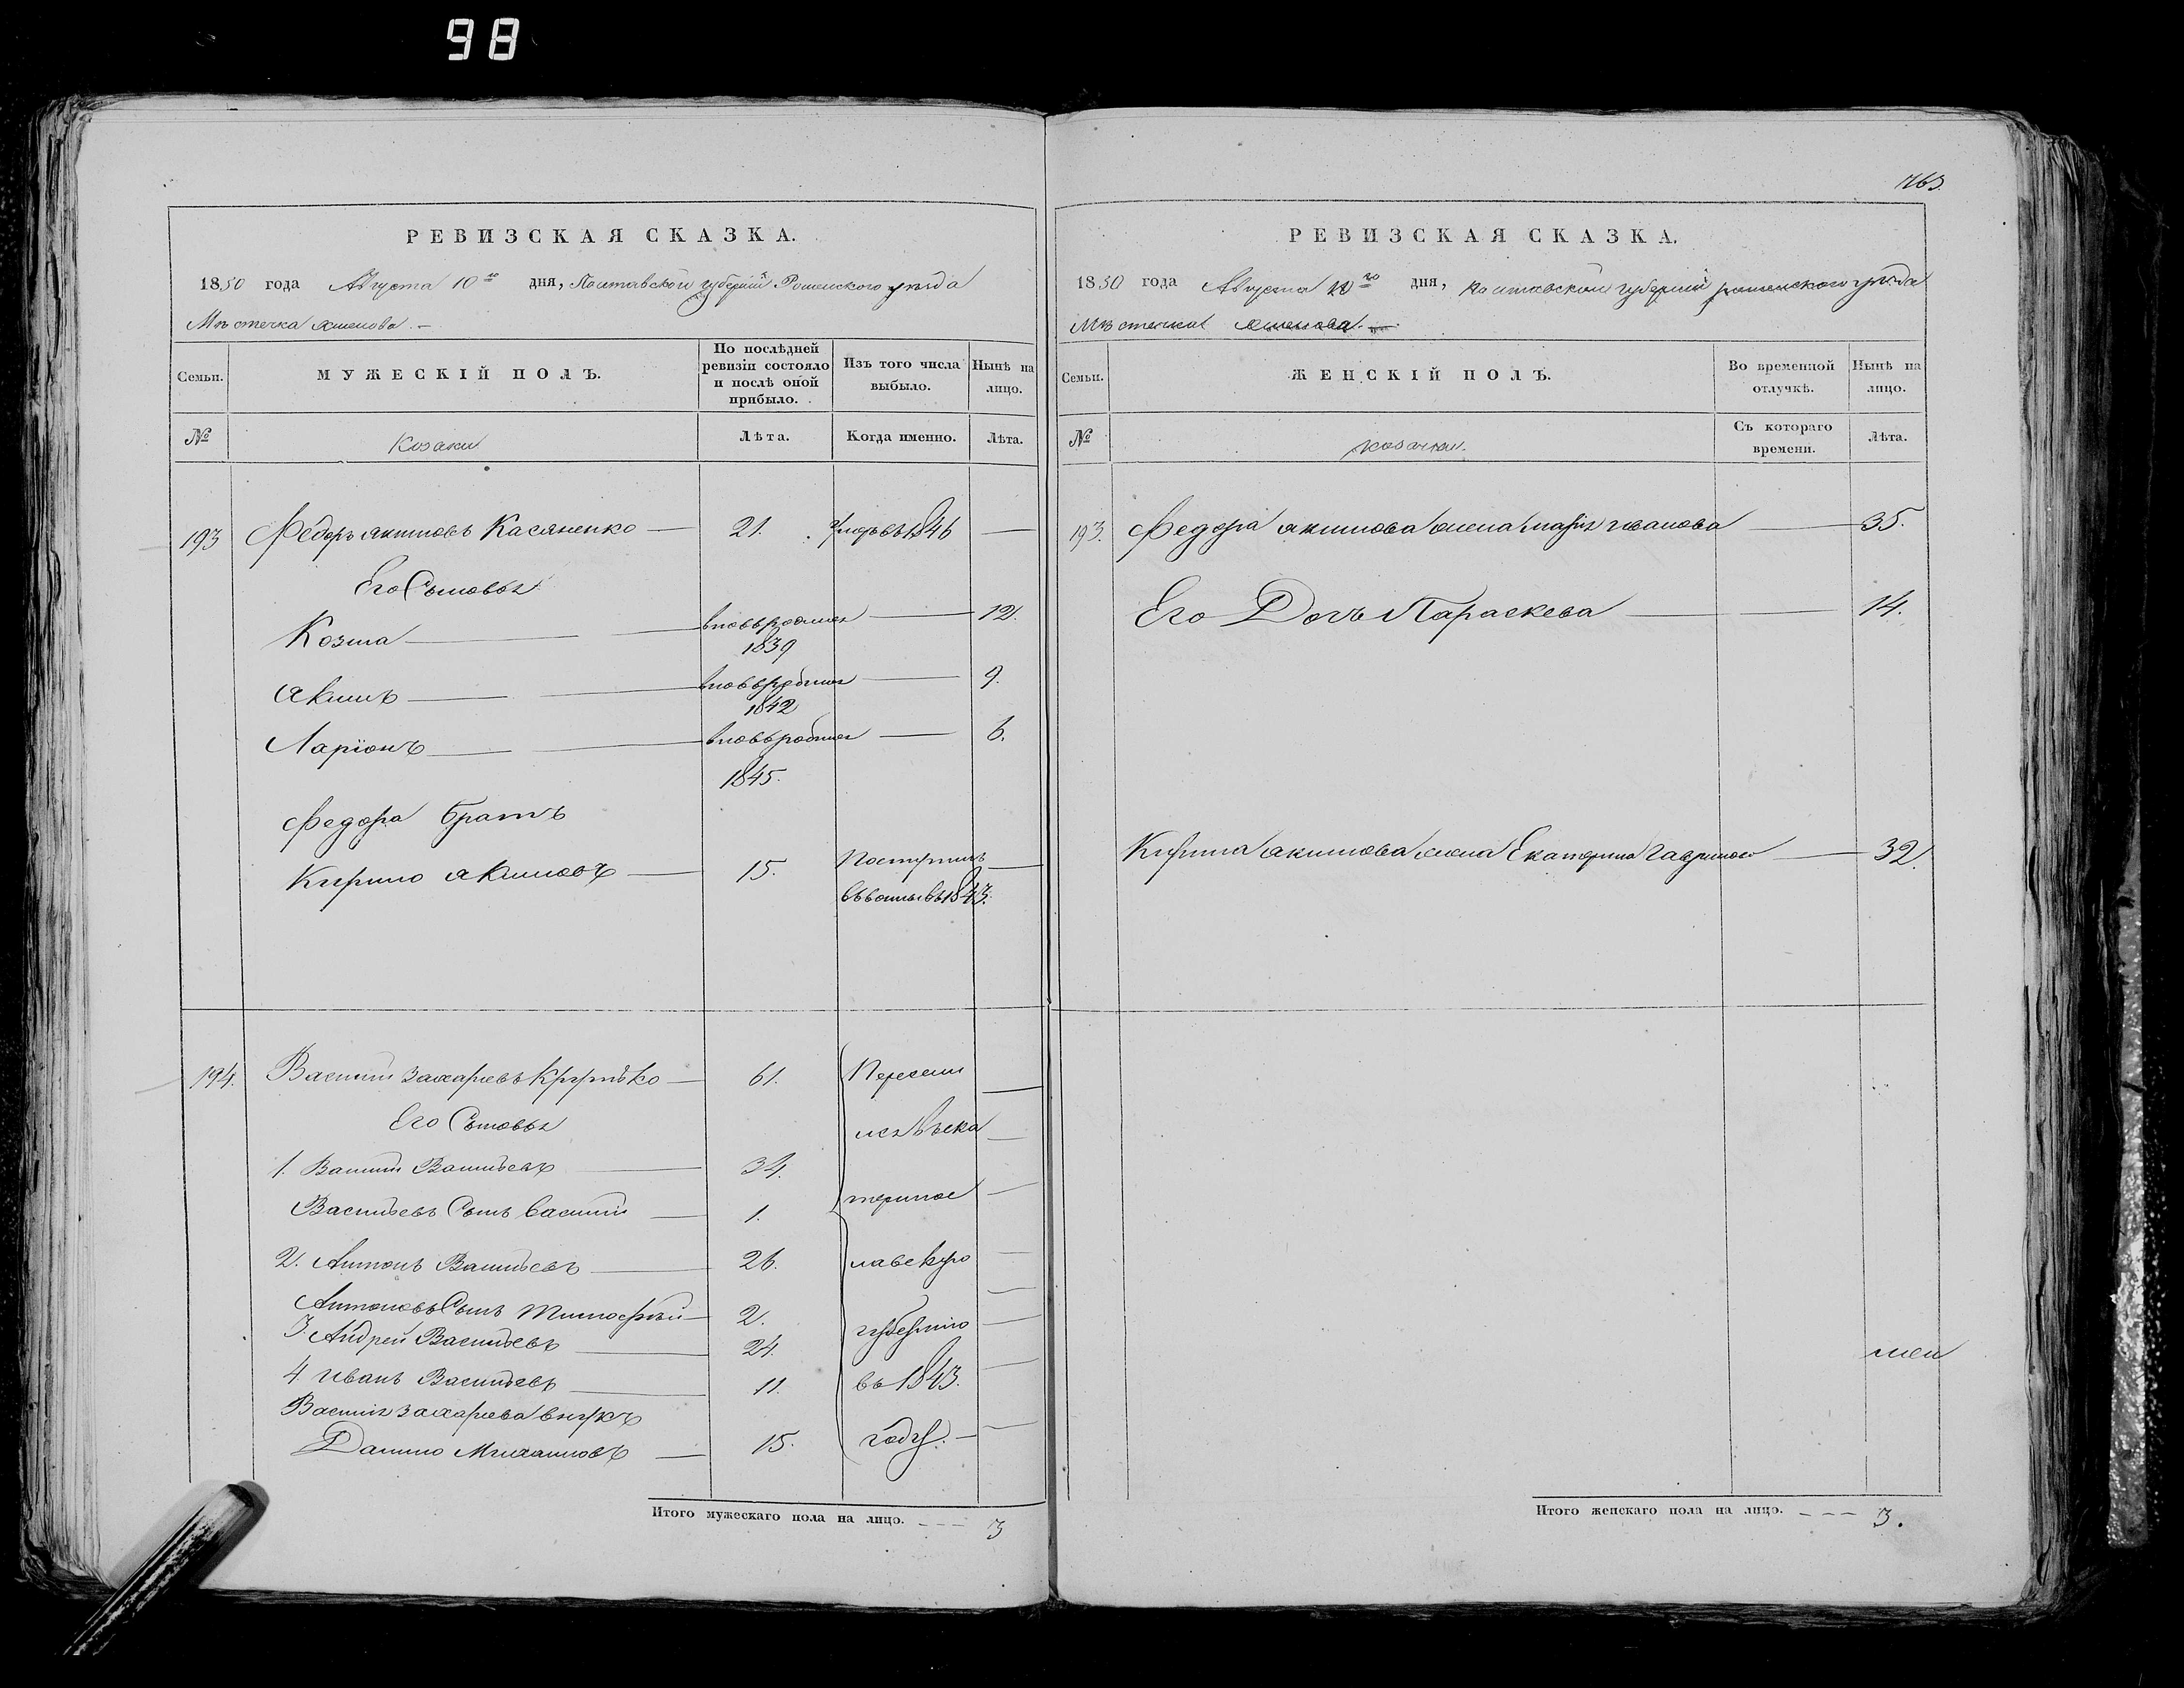 98
РЕВИЗСКАЯ СКАЗКА.
1850 года Августа 10го дня, Полтавской губерніи Роменского уезда
Местечка Хмелова. —
Семьи. МУЖЕСКІЙ ПОЛЪ. По послѣдней ревизіи состояло и послѣ оной прибыло. Изъ того числа выбыло. Нынѣ на лицо.
№ Козаки Лѣта. Когда именно. Лѣта.
193 Федоръ Акимовъ Касяненко — 21. умре въ 1846 —
Его Сыновья
Козма — вновь рожден 1839 — 12.
Акимъ — вновь рожден 1842 — 9.
Ларіонъ — вновь рожден 1845. — 6.
Федора братъ
Кирило Акимовъ — 15. Поступилъ —
1843.
194. Василий Захарьевъ — 61. Пересели —
Его Сыновья лся въ ека —
1. Василий Васильевъ — 34.
Васильевъ Сынъ Василий — 1. терино —
2. Антонъ Васильевъ — 26. славскую —
Антоновъ Сынъ Тимофей — 2. губернию —
3. Андрей Васильевъ — 24.
4 Иванъ Васильевъ — 11. въ 1843. —
Василия Захарьева внукъ
Данило Михайловъ — 15. году. — —
Итого мужескаго пола на лицо. --- 3
763
РЕВИЗСКАЯ СКАЗКА.
1850 года Августа 10го дня, Полтавской губерніи роменского уезда
Местечка Хмелова. —
Семьи. ЖЕНСКІЙ ПОЛЪ. Во временной отлучкѣ. Нынѣ на лицо.
№ козачки. Съ котораго времени. Лѣта.
193. Федора Акимова жена Марія Иванова — 35.
Его Дочь Параскева — 14.
Кирила Акимова жена Екатерина Гаврилова — 32.
Итого женскаго пола на лицо. --- 3.